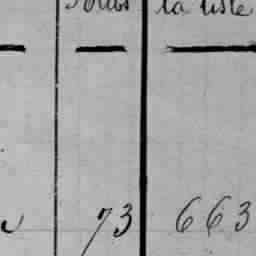 la liste
73 663